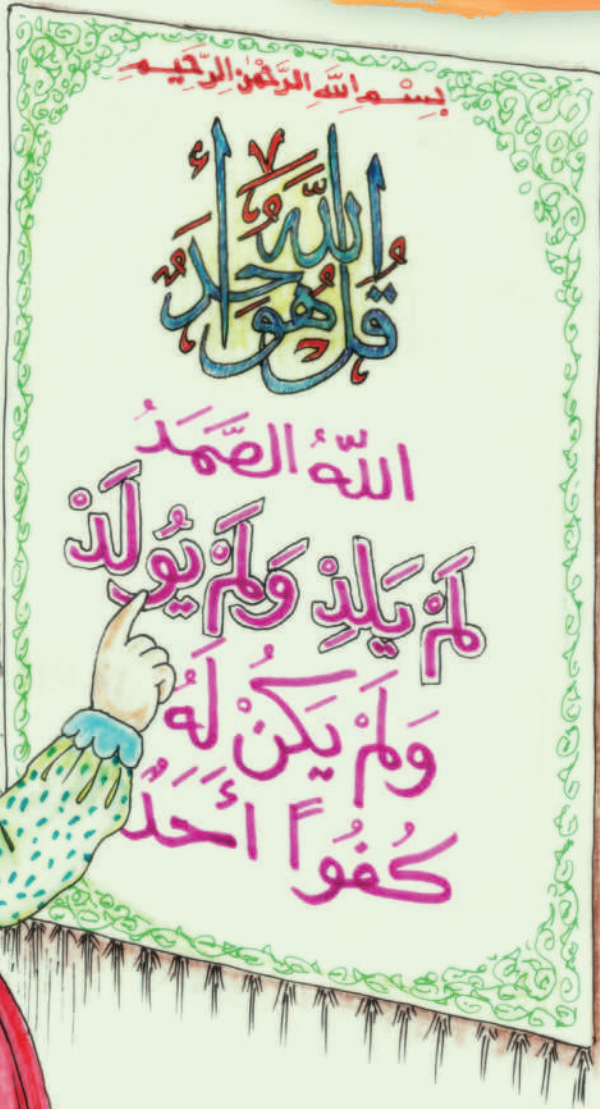 بِسْمِ اللَّهِ الرَّحْمٰنِ الرَّحِيمِ
قُلْ هُوَ اللَّهُ أَحَدٌ
اللَّهُ الصَّمَدُ
لَمْ يَلِدْ وَلَمْ يُولَدْ
وَلَمْ يَكُنْ لَهُ
كُفُوًا أَحَدٌ